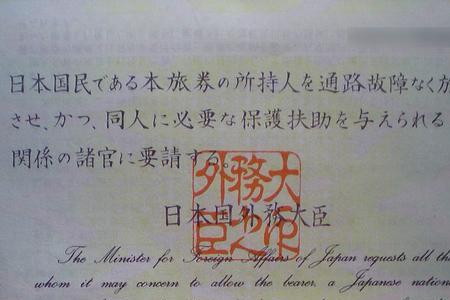 日本国民である本旅券の所持人を通路故障なく
させ、かつ、同人に必要な保護扶助を与えられる
関係の諸官に要請する。
日本国外務大臣
The Minister for Foreign Affairs of Japan requests all
whom it may concern to allow the bearer, a Japanese